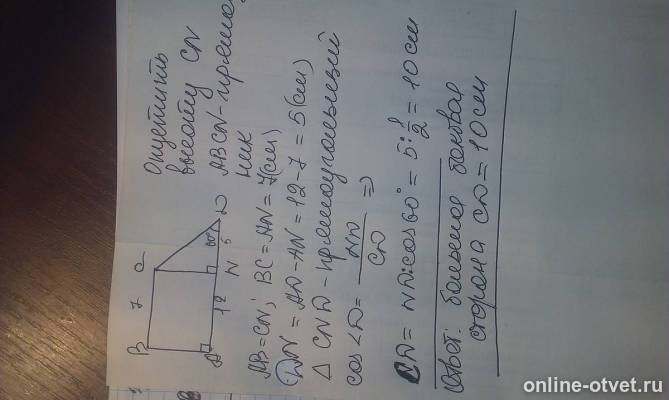 B 7 C
A 12 N 5 D
60°
Опустить
высоту CN
ABCN - прямоуг
ник
AB = CN; BC = AN = 7(см)
DN = AD - AN = 12 - 7 = 5(см)
△ CND - прямоугольный
cos∠D = ND/CD ⇒
CD = ND : cos 60° = 5 : 1/2 = 10 см
Ответ: большая боковая
сторона CD = 10 см
online-otvet.ru